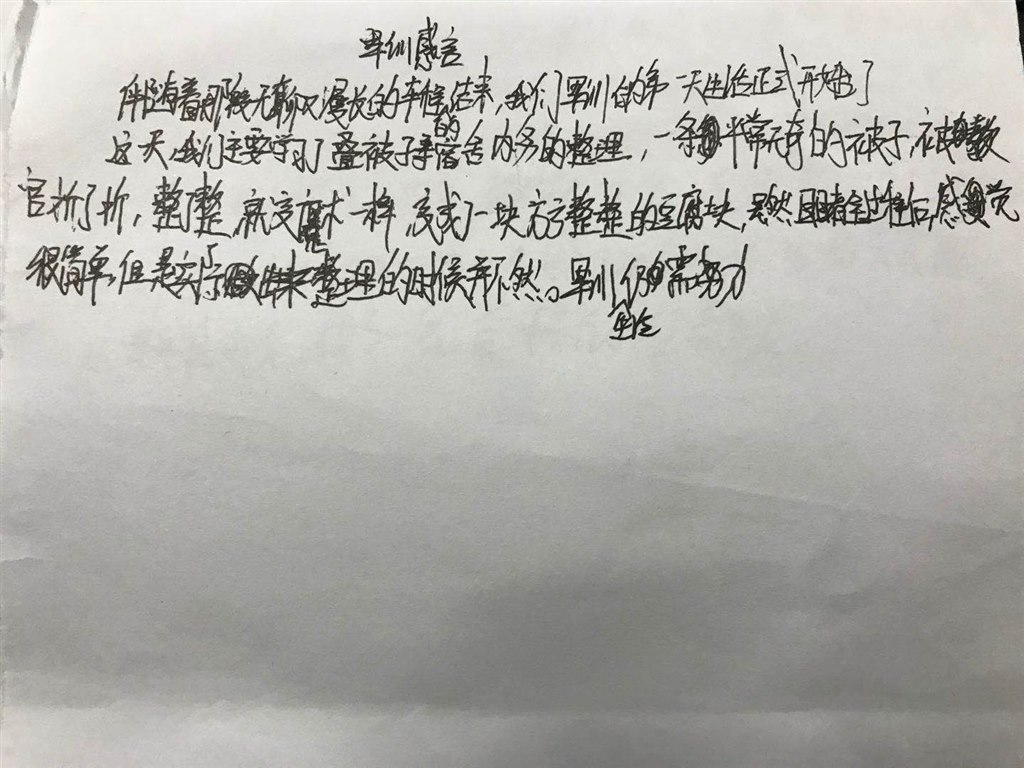 军训感言
伴随着那段无聊又漫长的车程结束,我们军训的第一天生活正式开始了
这天,我们主要学习了叠被子和宿舍的内务的整理,一条平常无奇的衣被子,在被教
官折了折,整了整,就变魔术一样,变成了一块方方整整的豆腐块,虽然目睹全过程后,感觉
很简单,但是实际整理的时候并不然。军训仍需努力
生活